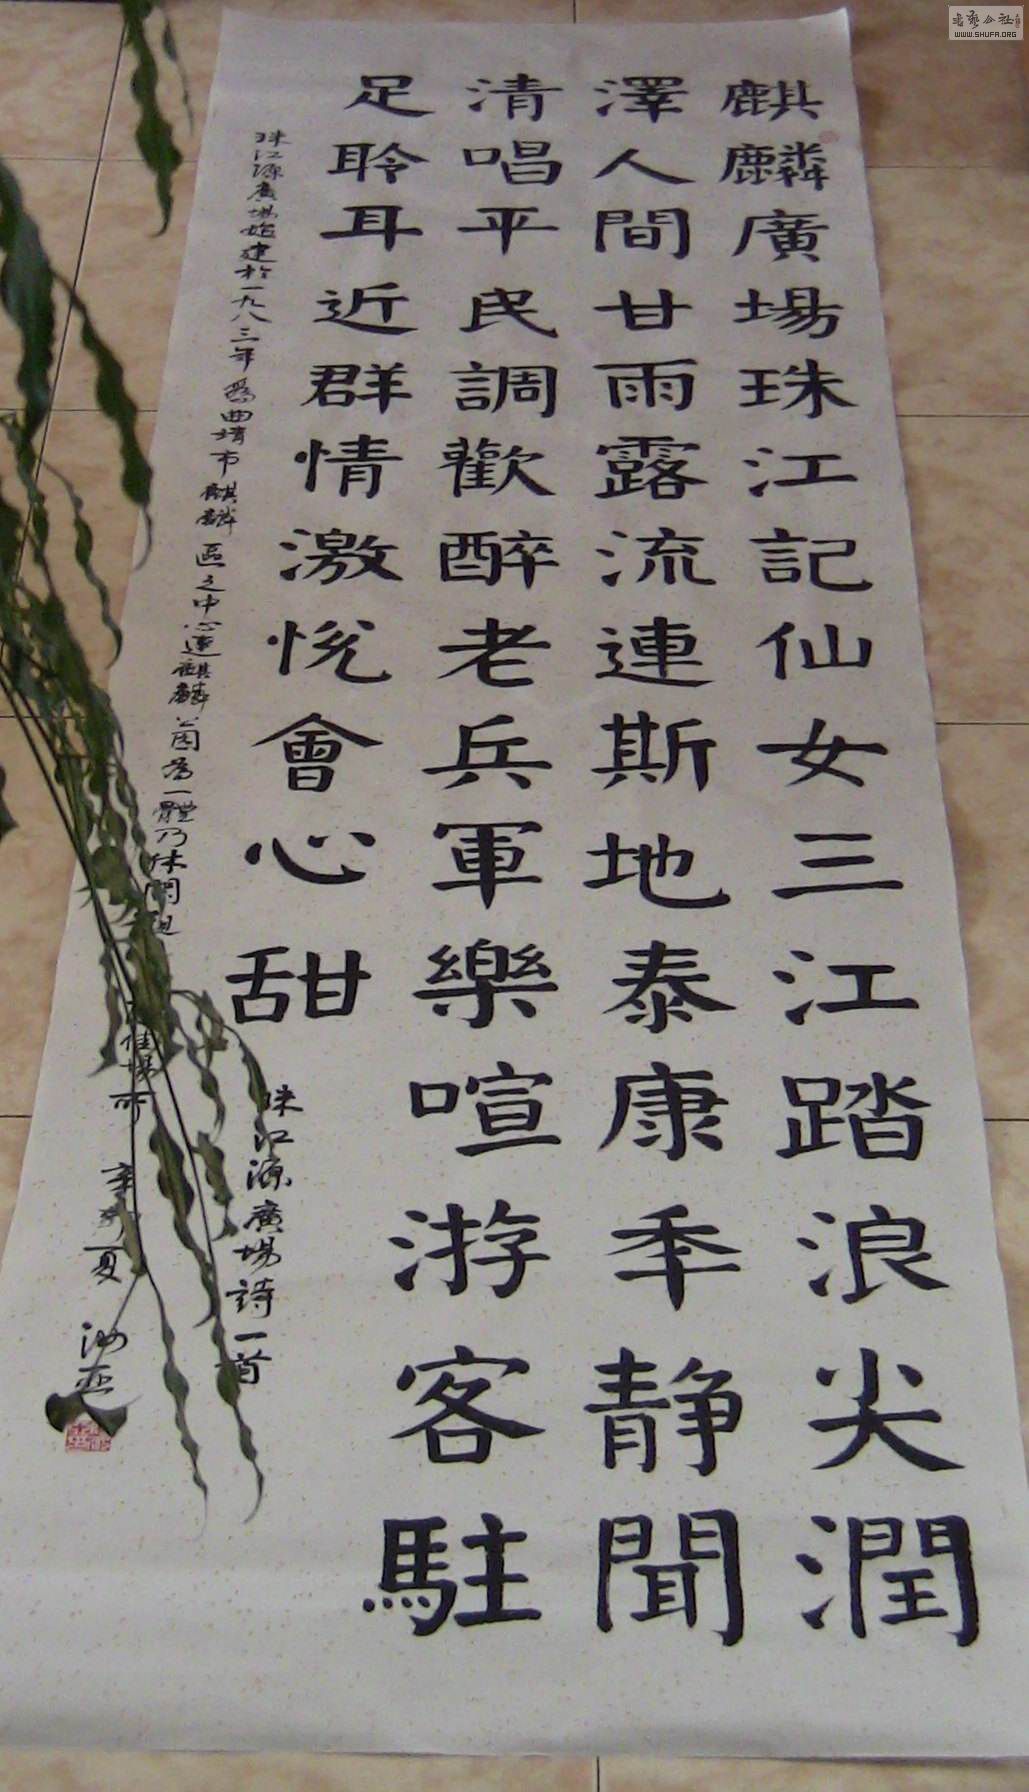 麒麟廣場珠江記仙女三江踏浪尖潤
澤人間甘雨露流連斯地泰康年静聞
清唱平民調歡醉老兵軍樂喧游客駐
足聆耳近群情激悦會心甜
珠江源廣場詩一首
珠江源廣場始建於一九八三年爲曲靖市麒麟區之中心連麒麟為一體乃休閑佳場所
夏
WWW.SHUFA.ORG